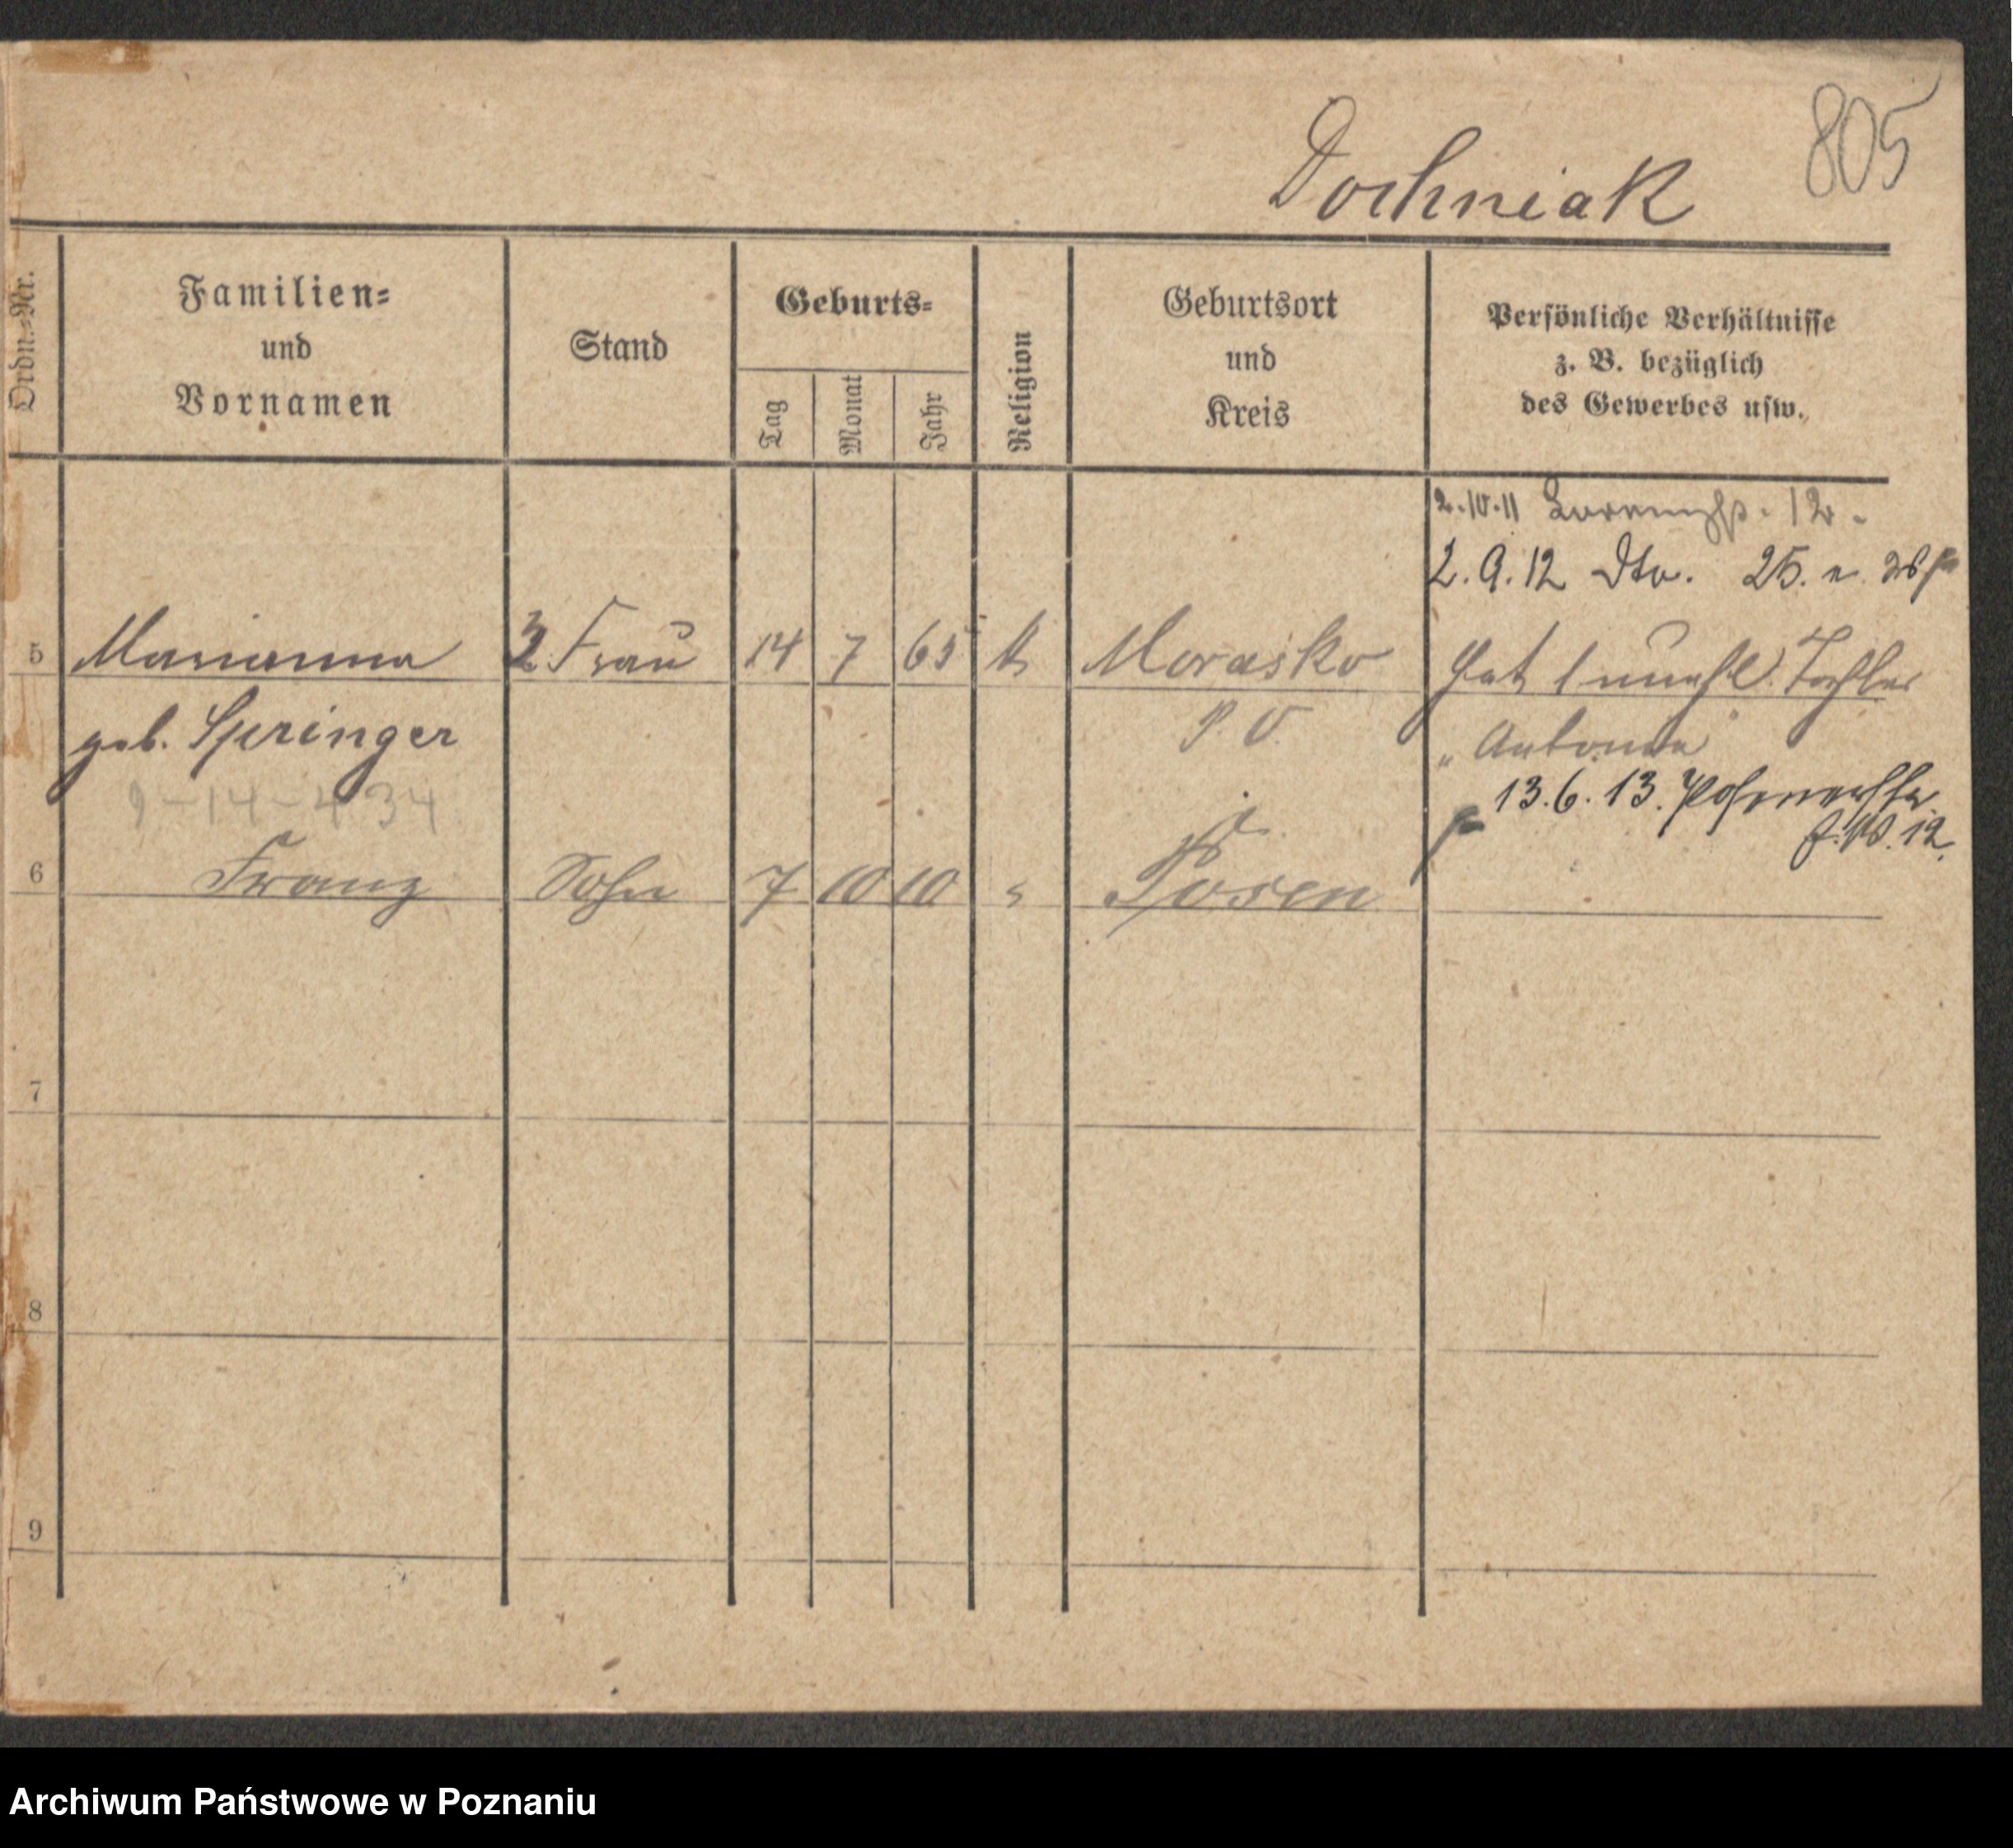 805
Dochniak
Ordn.-Nr.
Familien-
und
Vornamen
Stand
Geburts-
Tag
Monat
Jahr
Religion
Geburtsort
und
Kreis
Persönliche Verhältnisse
z. B. bezüglich
des Gewerbes usw.
2.10.11 12
2.9.12 Dto. 25.
5 Marianna Frau 14 7 65 k Morasko hat 1 unehl. Tochter
geb. Springer P. O. "Antonie"
9-14-4 34 13.6.13.
12.
6 Franz Sohn 7 10 10 " Posen
7
8
9
Archiwum Państwowe w Poznaniu